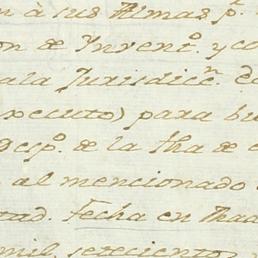 à sus Almas p.r
on de Invent.o y co
ala Jurisdicc.n
executo) para bu
Desp.o de la fha de
al mencionado
tad. Fecha en Maa
mil, setecientos